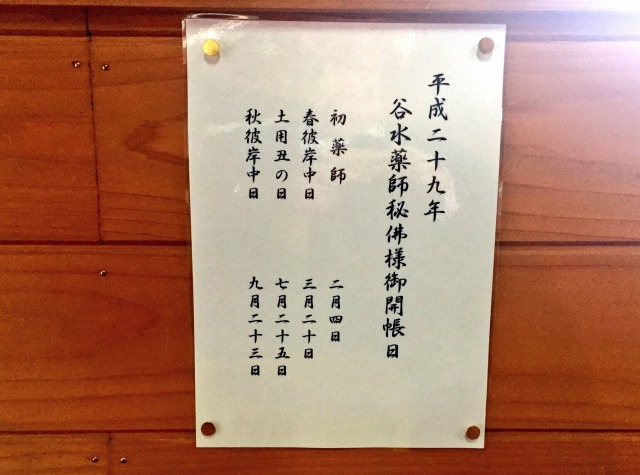 平成二十九年
谷水薬師秘佛様御開帳日
初薬師 二月四日
春彼岸中日 三月二十日
土用丑の日 七月二十五日
秋彼岸中日 九月二十三日